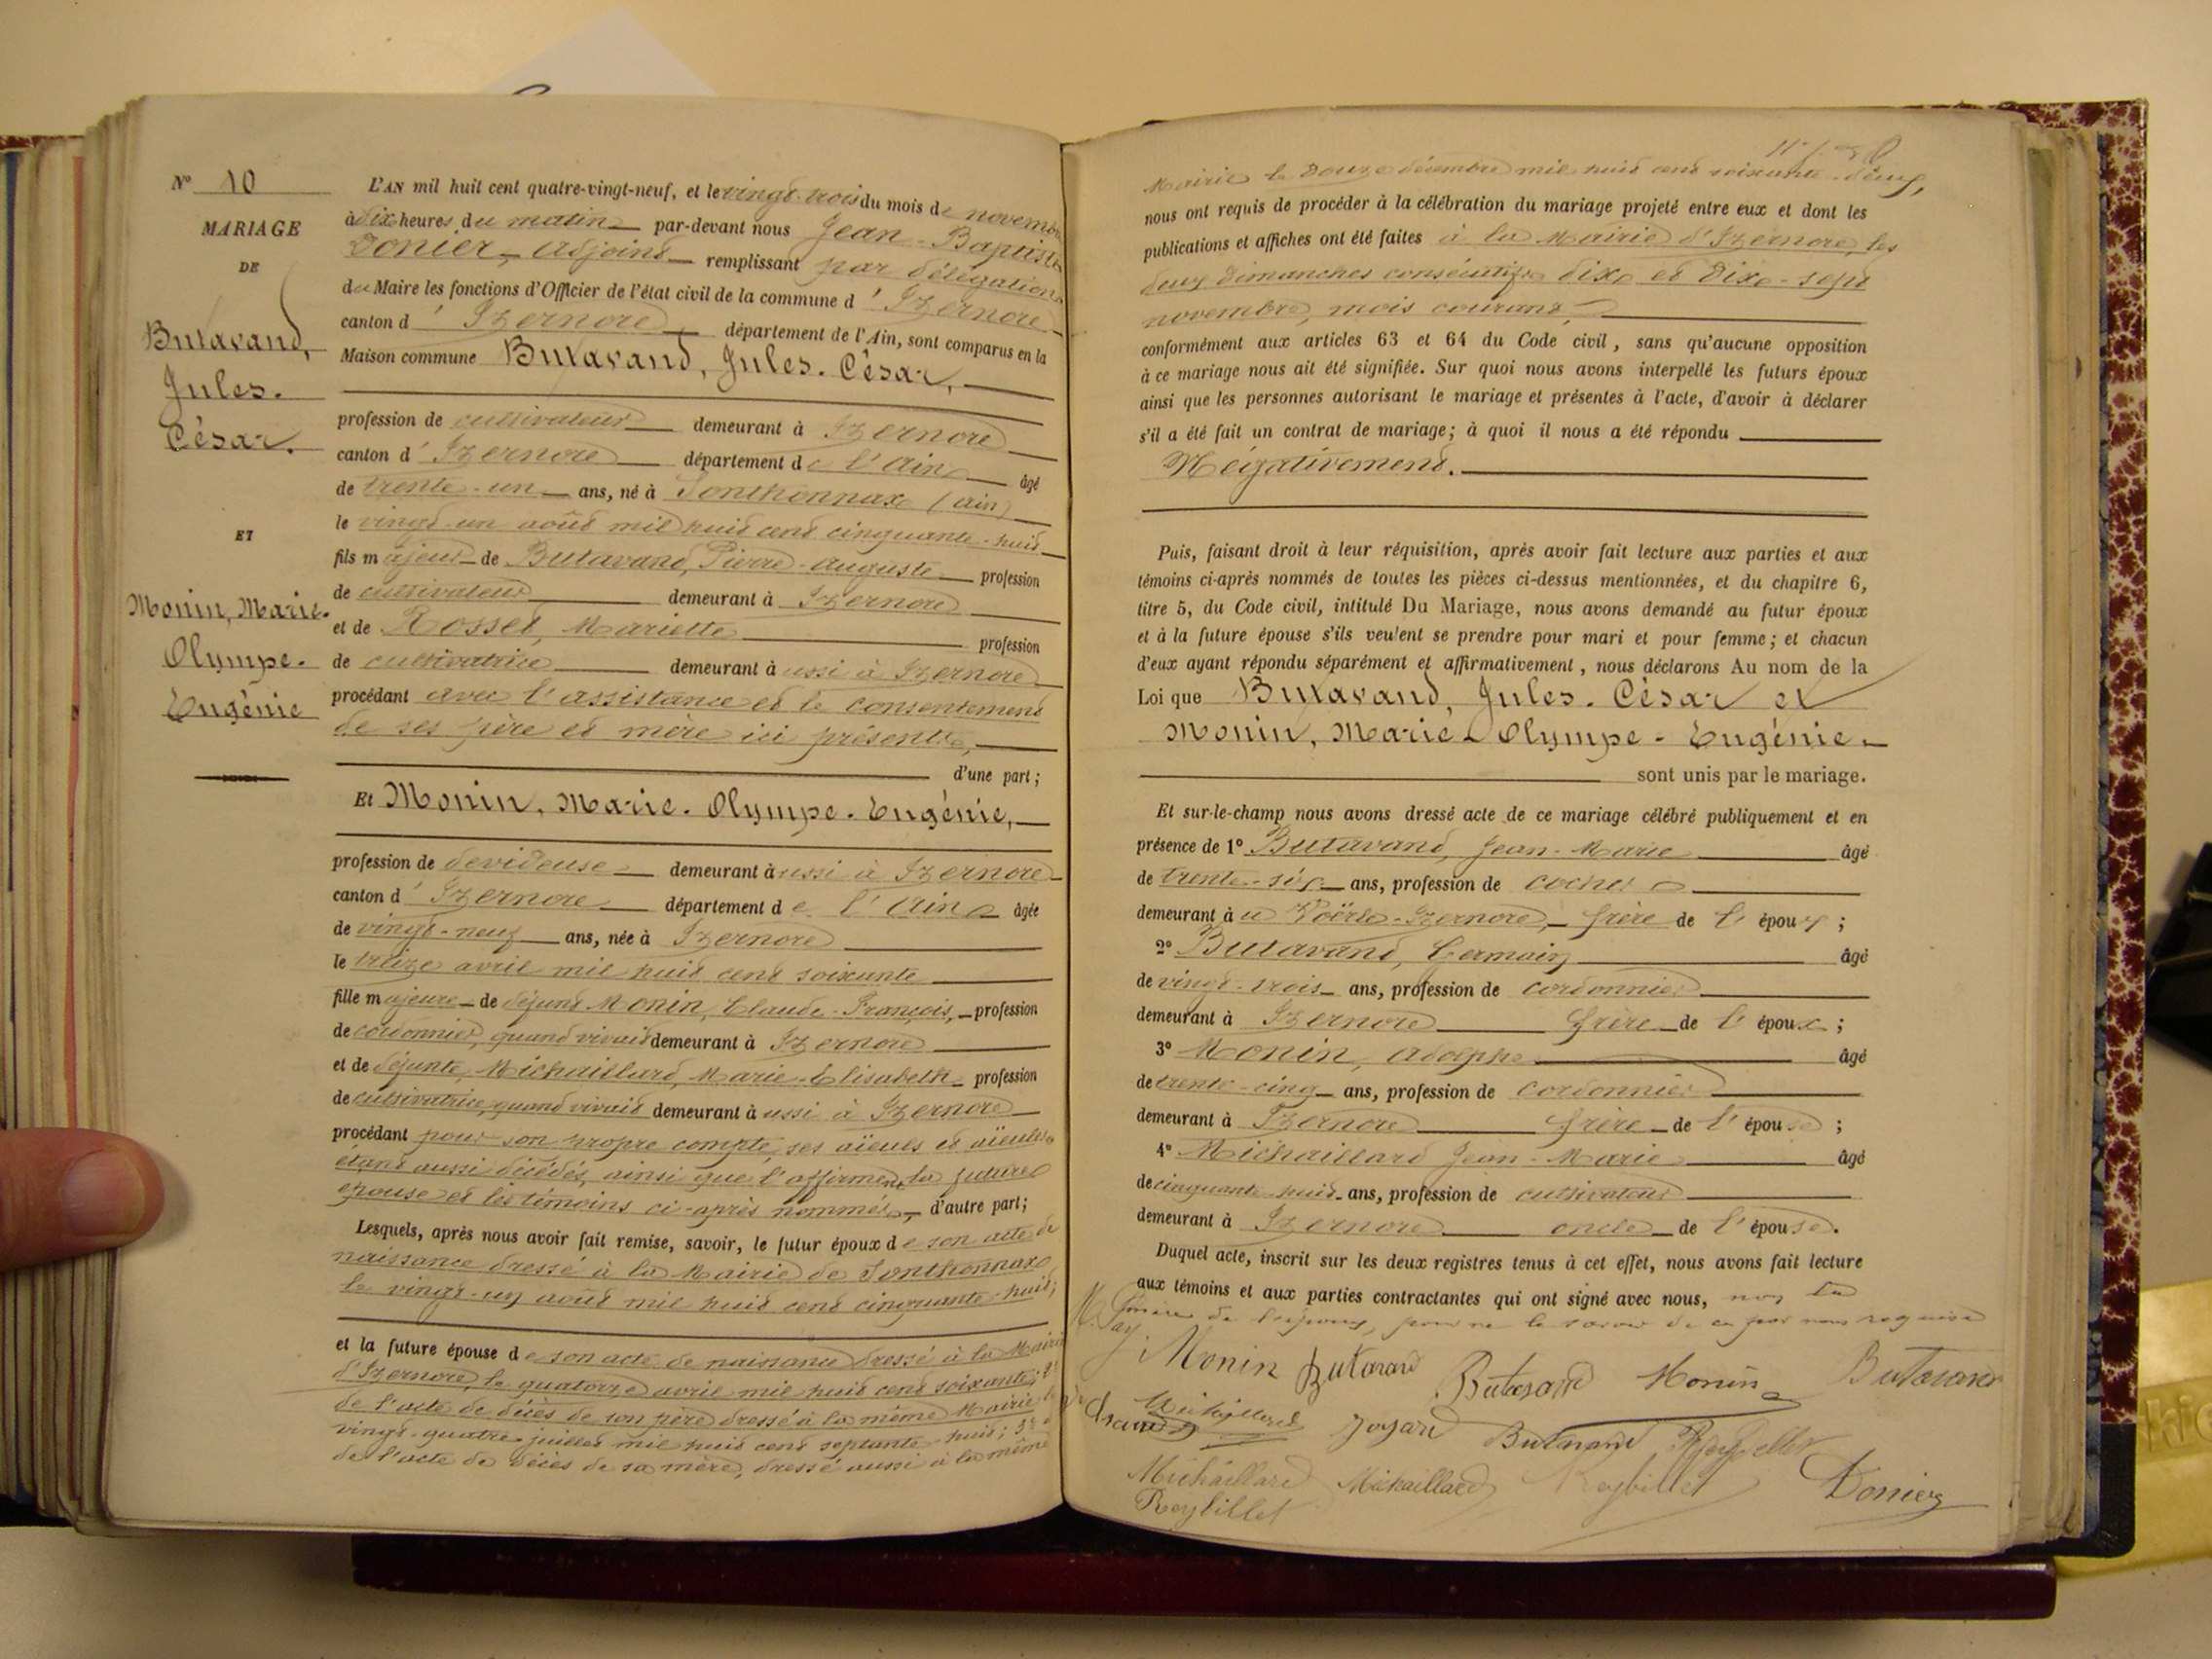 N° 10
MARIAGE
DE
Butavand,
Jules.
César.
ET
Monin, Marie.
Olympe.
Eugénie
L'AN mil huit cent quatre-vingt-neuf, et le vingt-trois du mois de novembre
à dix heures du matin par-devant nous Jean-Baptiste
Donier, Adjoint remplissant par délégation
du Maire les fonctions d'Officier de l'état civil de la commune d'Izernore
canton d'Izernore, département de l'Ain, sont comparus en la
Maison commune Butavand, Jules. César,
profession de cultivateur demeurant à Izernore
canton d'Izernore département de l'Ain âgé
de trente-un ans, né à Sonthonnax (ain)
le vingt-un août mil huit cent cinquante-huit
fils majeur de Butavand, Pierre-Auguste profession
de cultivateur demeurant à Izernore
et de Rosset, Mariette profession
de cultivatrice demeurant aussi à Izernore
procédant avec l'assistance et le consentement
de ses père et mère ici présents,
d'une part;
Et Monin, Marie. Olympe. Eugénie,
profession de dévideuse demeurant aussi à Izernore
canton d'Izernore département de l'Ain âgée
de vingt-neuf ans, née à Izernore
le treize avril mil huit cent soixante
fille majeure de défunt Monin, Claude-François, profession
de cordonnier, quand vivait demeurant à Izernore
et de défunte, Michaillard, Marie-Elisabeth profession
de cultivatrice, quand vivait demeurant aussi à Izernore
procédant pour son propre compte, ses aïeuls et aïeules
étant aussi décédés, ainsi que l'affirment la future
épouse et les témoins ci-après nommés, d'autre part;
Lesquels, après nous avoir fait remise, savoir, le futur époux de son acte de
naissance dressé à la Mairie de Sonthonnax
le vingt-un août mil huit cent cinquante-huit;
et la future épouse de son acte de naissance dressé à la Mairie
d'Izernore, le quatorze avril mil huit cent soixante;
de l'acte de décès de son père dressé à la même Mairie le
vingt-quatre juillet mil huit cent septante-huit;
de l'acte de décès de sa mère, dressé aussi à la même
Mairie le douze décembre mil huit cent soixante-deux,
nous ont requis de procéder à la célébration du mariage projeté entre eux et dont les
publications et affiches ont été faites à la Mairie d'Izernore, les
deux dimanches consécutifs dix et dix-sept
novembre, mois courant
conformément aux articles 63 et 64 du Code civil, sans qu'aucune opposition
à ce mariage nous ait été signifiée. Sur quoi nous avons interpellé les futurs époux
ainsi que les personnes autorisant le mariage et présentes à l'acte, d'avoir à déclarer
s'il a été fait un contrat de mariage; à quoi il nous a été répondu
Négativement.
Puis, faisant droit à leur réquisition, après avoir fait lecture aux parties et aux
témoins ci-après nommés de toutes les pièces ci-dessus mentionnées, et du chapitre 6,
titre 5, du Code civil, intitulé Du Mariage, nous avons demandé au futur époux
et à la future épouse s'ils veulent se prendre pour mari et pour femme; et chacun
d'eux ayant répondu séparément et affirmativement, nous déclarons Au nom de la
Loi que Butavand, Jules. César et
Monin, Marie-Olympe-Eugénie
sont unis par le mariage.
Et sur-le-champ nous avons dressé acte de ce mariage célébré publiquement et en
présence de 1° Butavand, Jean-Marie âgé
de trente-six ans, profession de cocher
demeurant à Izernore, frère de l'époux;
2° Butavand, Germain âgé
de vingt-trois ans, profession de cordonnier
demeurant à Izernore frère de l'époux;
3° Monin, Adolphe âgé
de trente-cinq ans, profession de cordonnier
demeurant à Izernore frère de l'épouse;
4° Michaillard Jean-Marie âgé
de cinquante-huit ans, profession de cultivateur
demeurant à Izernore oncle de l'épouse.
Duquel acte, inscrit sur les deux registres tenus à cet effet, nous avons fait lecture
aux témoins et aux parties contractantes qui ont signé avec nous, non la
mère de l'époux, pour ne le savoir de ce par nous requise
Monin Butavand Butavand Monin Butavand
Michaillard Joyard Butavand Reybillet
Michaillard Michaillard Reybillet Donier
Reybillet